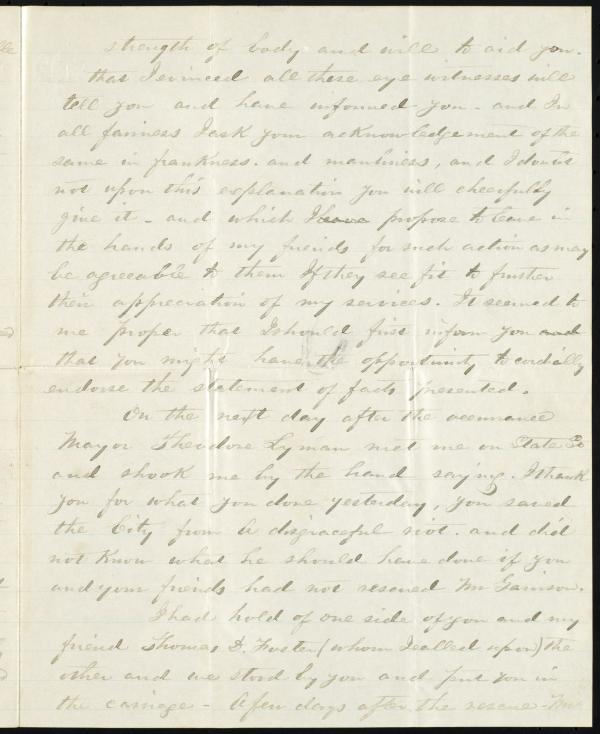 strength of body and will to aid you.
that I evinced all these eye witnesses will
tell you and have informed you. and In
all fairness I ask your acknowledgement of the
same in frankness. and manliness, and I doubt
not upon this explanation you will cheerfully
give it - and which I have propose to leave in
the hands of my friends for such action as may
be agreeable to them If they see fit to further
their appreciation of my services. It seemed to
me proper that I should first inform you and
that you might have the opportunity to cordially
endorse the statement of facts presented.
On the next day after the occurrance
Mayor Theodore Lyman met me on State St
and shook me by the hand saying. I thank
you for what you done yesterday, you saved
the City from a disgraceful riot. and did
not know what he should have done if you
and your friends had not rescued Mr Garrison.
I had hold of one side of you and my
friend Thomas D. Foster (whom I called upon) the
other and we stood by you and put you in
the carriage - A few days after the rescue - Mr